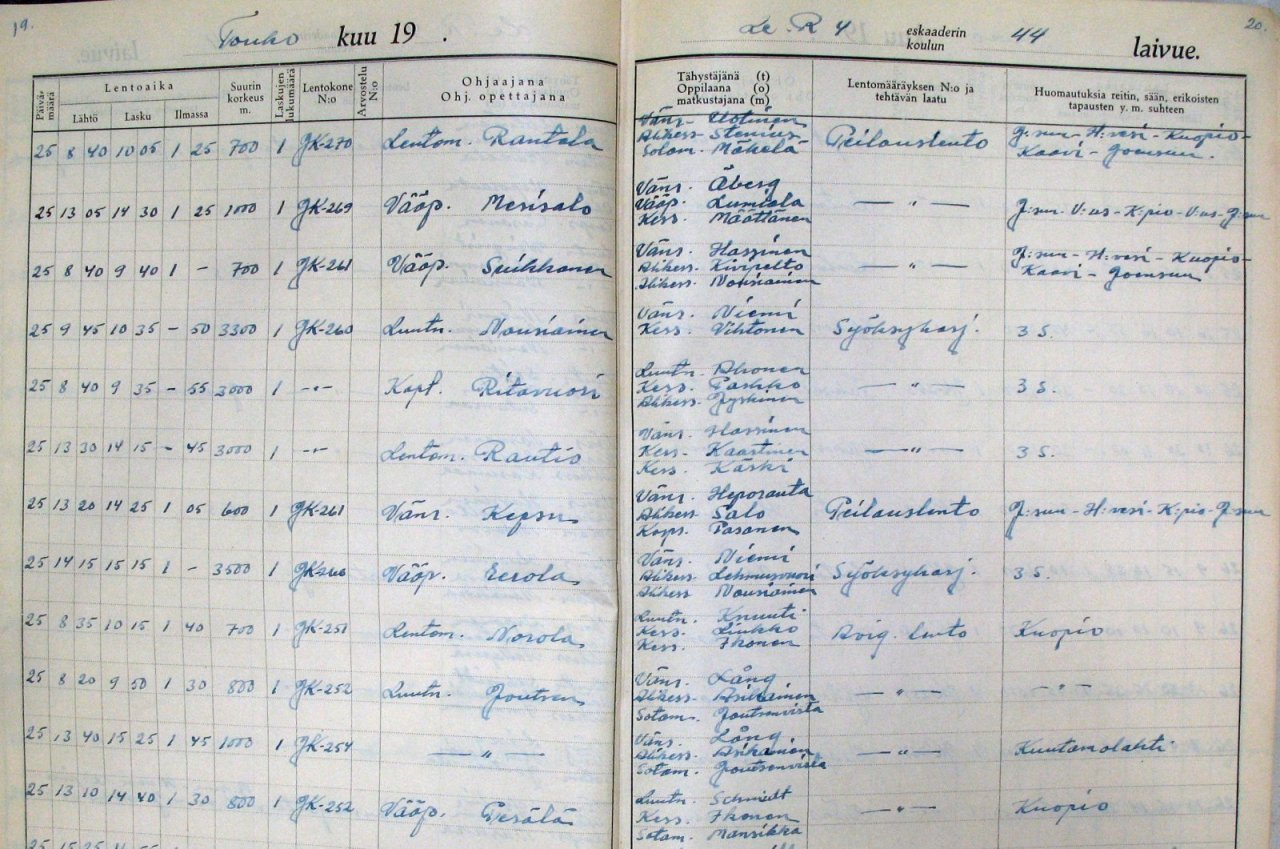 19.
Touko kuu 19 .
Le. R 4 eskaaderin koulun 44 laivue.
20.
Päivämäärä Lentoaika Suurin korkeus m. Laskujen lukumäärä Lentokone N:o Arvostelu N:o Ohjaajana Ohj. opettajana Tähystäjänä (t) Oppilaana (o) matkustajana (m) Lentomääräyksen N:o ja tehtävän laatu Huomautuksia reitin, sään, erikoisten tapausten y. m. suhteen
Lähtö Lasku Ilmassa
Väns. Uotinen
25 8 40 10 05 1 25 700 1 JK-270 Lentom. Rautala Alikers. Stenius Peilauslento J:suu - H:vesi - Kuopio -
Sotam. Mäkelä Kaavi - Joensuu.
Väns. Åberg
25 13 05 14 30 1 25 1000 1 JK-269 Vääp. Merisalo Vääp. Lumiala — " — J:suu - V:us - K:pio - V:us - J:suu
Kers. Määttänen
Väns. Hassinen
25 8 40 9 40 1 - 700 1 JK-261 Vääp. Suihkonen Alikers. Kivipelto — " — J:suu - H:vesi - Kuopio -
Alikers. Nousiainen Kaavi - Joensuu
Väns. Niemi
25 9 45 10 35 - 50 3300 1 JK-260 Luutn. Nousiainen Kers. Vihtonen Syöksyharj. 3 S.
Luutn. Ahonen
25 8 40 9 35 - 55 3000 1 -"- Kapt. Ritavuori Kers. Paakko — " — 3 S.
Alikers. Jyskinen
Väns. Hassinen
25 13 30 14 15 - 45 3000 1 -"- Lentom. Rautio Kers. Kaartinen — " — 3 S.
Kers. Käski
Väns. Heporauta
25 13 20 14 25 1 05 600 1 JK-261 Väns. Kepsu Alikers. Salo Peilauslento J:suu - H:vesi - K:pio - J:suu
Korp. Pasanen
Väns. Niemi
25 14 15 15 15 1 - 3500 1 JK-260 Vääp. Eerola Alikers. Lehmusvuori Syöksyharj. 3 S.
Alikers. Nousiainen
Luutn. Knuuti
25 8 35 10 15 1 40 700 1 JK-251 Lentom. Norola Kers. Liukko Avig. lento Kuopio
Kers. Ikonen
Väns. Lång
25 8 20 9 50 1 30 800 1 JK-252 Luutn. Joutsen Alikers. Asikainen — " — — " —
Sotam. Joutsenvirta
Väns. Lång
25 13 40 15 25 1 45 1000 1 JK-254 — " — Alikers. Asikainen — " — Kuutamolahti
Sotam. Joutsenvirta
Luutn. Schmidt
25 13 10 14 40 1 30 800 1 JK-252 Vääp. Perälä Kers. Ikonen — " — Kuopio
Sotam. Mansikka